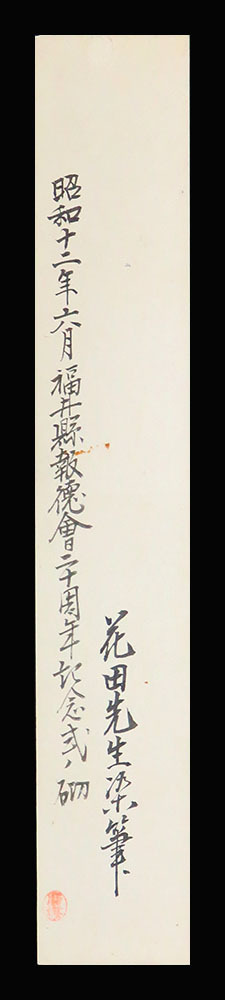 花田先生染筆
昭和十二年六月福井縣報德會二十周年記念式ノ砌